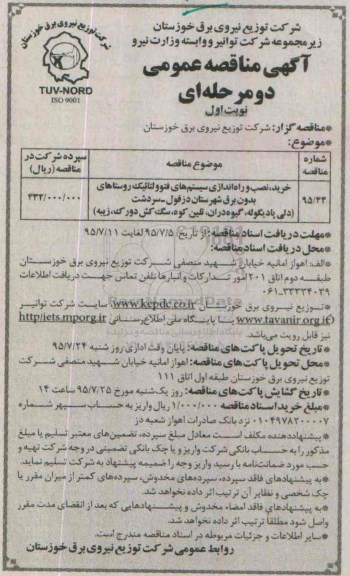 شرکت توزیع نیروی برق خوزستان
زیرمجموعه شرکت توانیر و وابسته وزارت نیرو
آگهی مناقصه عمومی
دو مرحله‌ای
نوبت اول
شرکت توزیع نیروی برق خوزستان
TUV-NORD
ISO 9001
*مناقصه گزار: شرکت توزیع نیروی برق خوزستان
*موضوع:
شماره مناقصه	موضوع مناقصه	سپرده شرکت در مناقصه (ریال)
۹۵/۴۴	خرید، نصب و راه اندازی سیستم‌های فتوولتائیک روستاهای
بدون برق شهرستان دزفول ـ سردشت	۴۳۲/۰۰۰/۰۰۰
(دلی پادیگوله، گیوه‌دران، تلین کوه، سگ کش دورک، زیبه)
*مهلت دریافت اسناد مناقصه: از تاریخ: ۹۵/۷/۵ لغایت ۹۵/۷/۱۱
*محل دریافت اسناد مناقصه:
*الف: اهواز امانیه خیابان شهید منصفی شرکت توزیع نیروی برق خوزستان
طبقه دوم اتاق ۲۰۱ امور تدارکات و انبارها تلفن تماس جهت دریافت اطلاعات
۰۶۱-۳۳۳۳۴۰۳۹
توزیع نیروی برق خوزستان (www.kepdc.co.ir) سایت شرکت توانیر
(www.tavanir.org.ir) یا پایگاه ملی اطلاع‌رسانی http://iets.mporg.ir
نیز قابل رویت می‌باشد.
*تاریخ تحویل پاکت‌های مناقصه: پایان وقت اداری روز شنبه ۹۵/۷/۲۴
*محل تحویل پاکت‌های مناقصه: اهواز امانیه خیابان شهید منصفی شرکت
توزیع نیروی برق خوزستان طبقه اول اتاق ۱۱۱
*تاریخ گشایش پاکت‌های مناقصه: روز یک‌شنبه مورخ ۹۵/۷/۲۵ ساعت ۱۴
*مبلغ خرید اسناد مناقصه ۱/۰۰۰/۰۰۰ ریال واریز به حساب سپهر شماره
۰۱۰۴۹۷۸۳۰۰۰۰۷ نزد بانک صادرات اهواز شعبه دز
*پیشنهاددهنده مکلف است معادل مبلغ سپرده، تضمین‌های معتبر تسلیم یا مبلغ
مذکور را به حساب بانکی شرکت واریز و یا چک بانکی تضمینی در وجه شرکت تهیه و
حسب مورد ضمانت‌نامه یا رسید واریز وجه را ضمیمه پیشنهاد به شرکت تسلیم نماید.
*به پیشنهادهای فاقد سپرده، سپرده‌های مخدوش، سپرده‌های کمتر از میزان مقرر یا
چک شخصی و نظایر آن ترتیب اثر داده نخواهد شد.
*به پیشنهادهای فاقد امضاء مخدوش و پیشنهادهایی که بعد از انقضای مدت مقرر
واصل شود مطلقا ترتیب اثر داده نخواهد شد.
*سایر اطلاعات و جزئیات مربوطه در اسناد مناقصه مندرج است.
روابط عمومی شرکت توزیع نیروی برق خوزستان